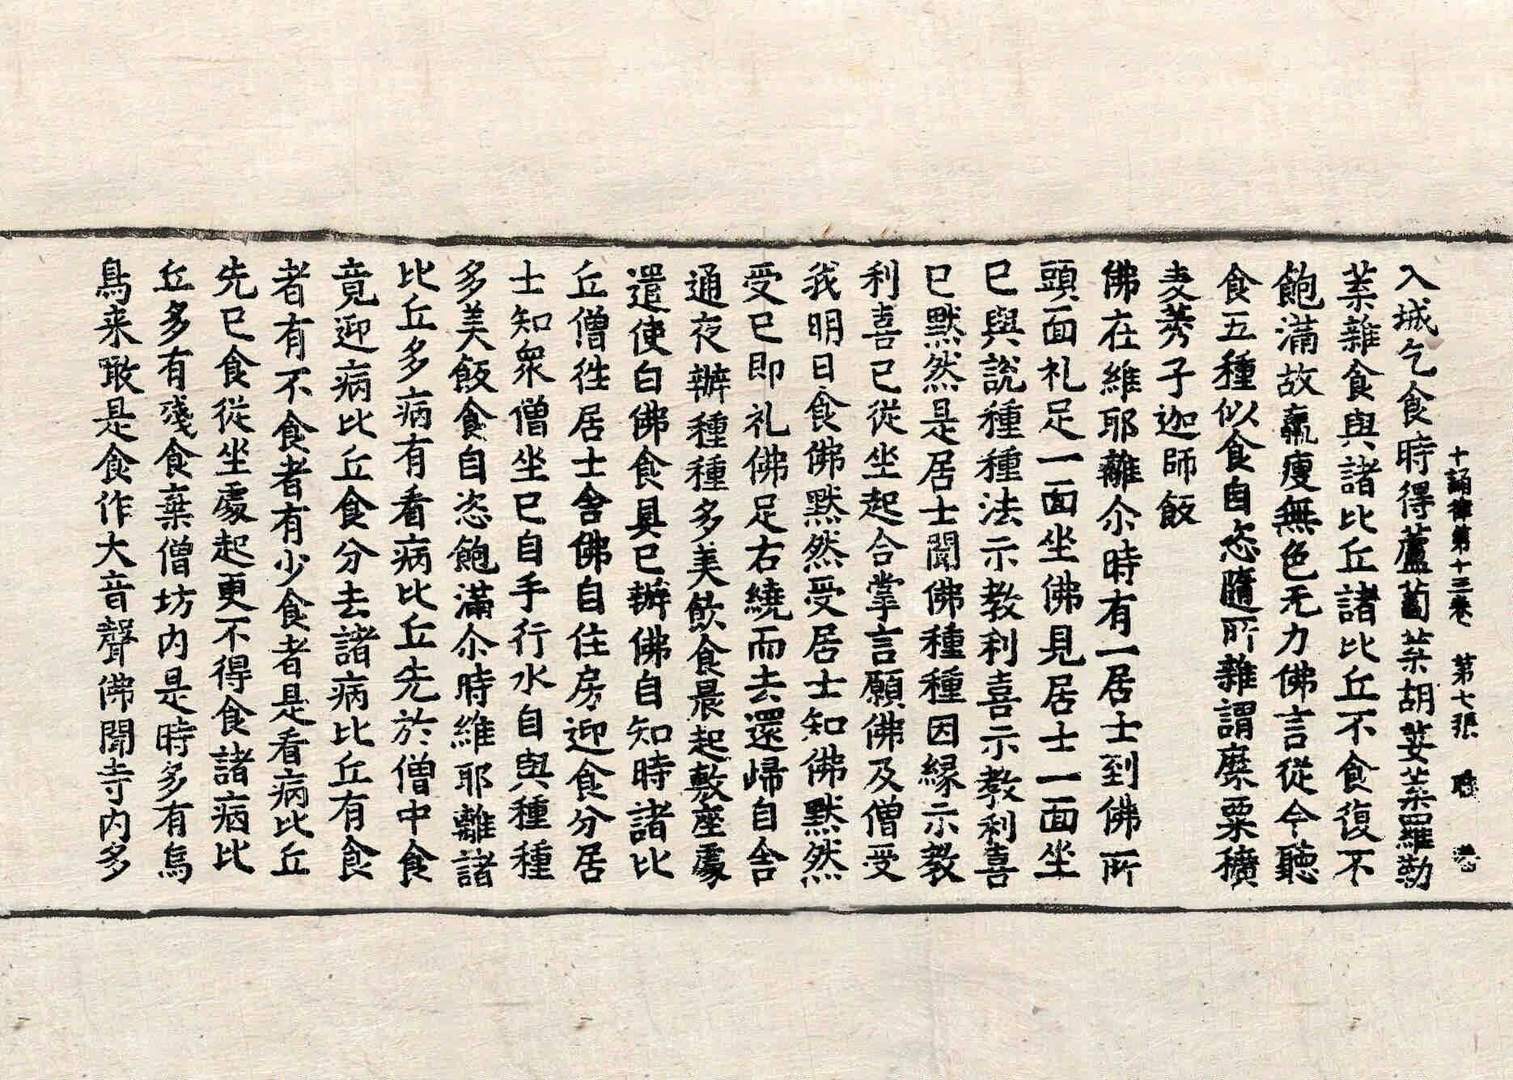 十誦律第十三卷　第七張　聴
入城乞食時得蘆蔔菜胡荽菜羅勒
菜雜食與諸比丘諸比丘不食復不
飽滿故羸瘦無色无力佛言從今聽
食五種似食自恣隨所雜謂糜粟穬
麦莠子迦師飯
佛在維耶離尒時有一居士到佛所
頭面礼足一面坐佛見居士一面坐
已與說種種法示教利喜示教利喜
已默然是居士聞佛種種因緣示教
利喜已從坐起合掌言願佛及僧受
我明日食佛默然受居士知佛默然
受已即礼佛足右繞而去還歸自舎
通夜辦種種多美飲食晨起敷座處
遣使白佛食具已辦佛自知時諸比
丘僧徃居士舎佛自住房迎食分居
士知衆僧坐已自手行水自與種種
多美飯食自恣飽滿尒時維耶離諸
比丘多病有看病比丘先於僧中食
竟迎病比丘食分去諸病比丘有食
者有不食者有少食者是看病比丘
先已食從坐處起更不得食諸病比
丘多有殘食棄僧坊内是時多有烏
鳥来噉是食作大音聲佛聞寺内多